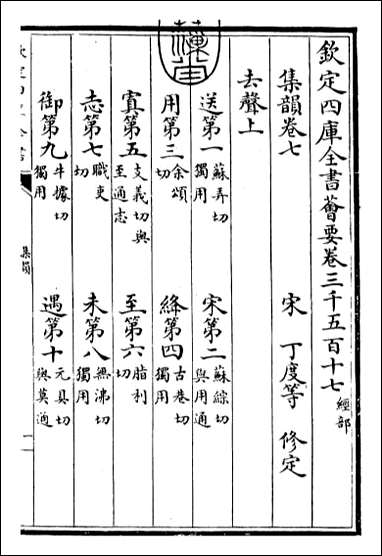 欽定四庫全書薈要卷三千五百十七 經部
集韻卷七
宋 丁度等 修定
去聲上
送第一 蘇弄切獨用 宋第二 蘇綜切與用通
用第三 余頌切 絳第四 古巷切獨用
寘第五 支義切與至通志 至第六 脂利切
志第七 職吏切 未第八 無沸切獨用
御第九 牛據切獨用 遇第十 元具切與莫通
集韻